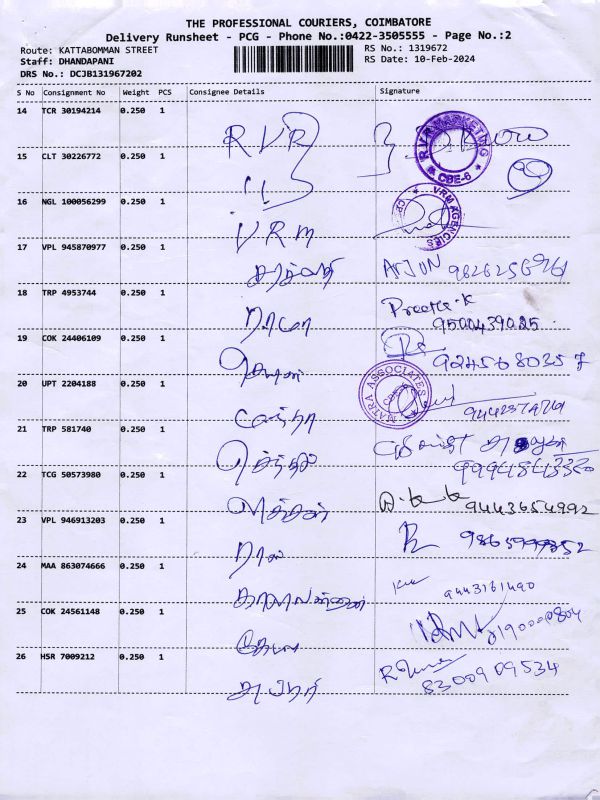 THE PROFESSIONAL COURIERS, COIMBATORE
Delivery Runsheet - PCG - Phone No.:0422-3505555 - Page No.:2
Route: KATTABOMMAN STREET RS No.: 1319672
Staff: DHANDAPANI RS Date: 10-Feb-2024
DRS No.: DCJB131967202
S No Consignment No Weight PCS Consignee Details Signature
14 TCR 30194214 0.250 1 RVR
RVR MARKETING CBE-6
15 CLT 30226772 0.250 1 "
16 NGL 100056299 0.250 1 VRM
VRM AGENCIES
17 VPL 945870977 0.250 1 ARJUN
18 TRP 4953744 0.250 1 ராமா Preethe.K
9500439025
19 COK 24406109 0.250 1
9245680357
20 UPT 2204188 0.250 1
MATRA ASSOCIATES
21 TRP 581740 0.250 1 செந்தில்
22 TCG 50573980 0.250 1 9443654992
23 VPL 946913203 0.250 1
24 MAA 863074666 0.250 1 9443161490
25 COK 24561148 0.250 1
26 HSR 7009212 0.250 1
8300909534